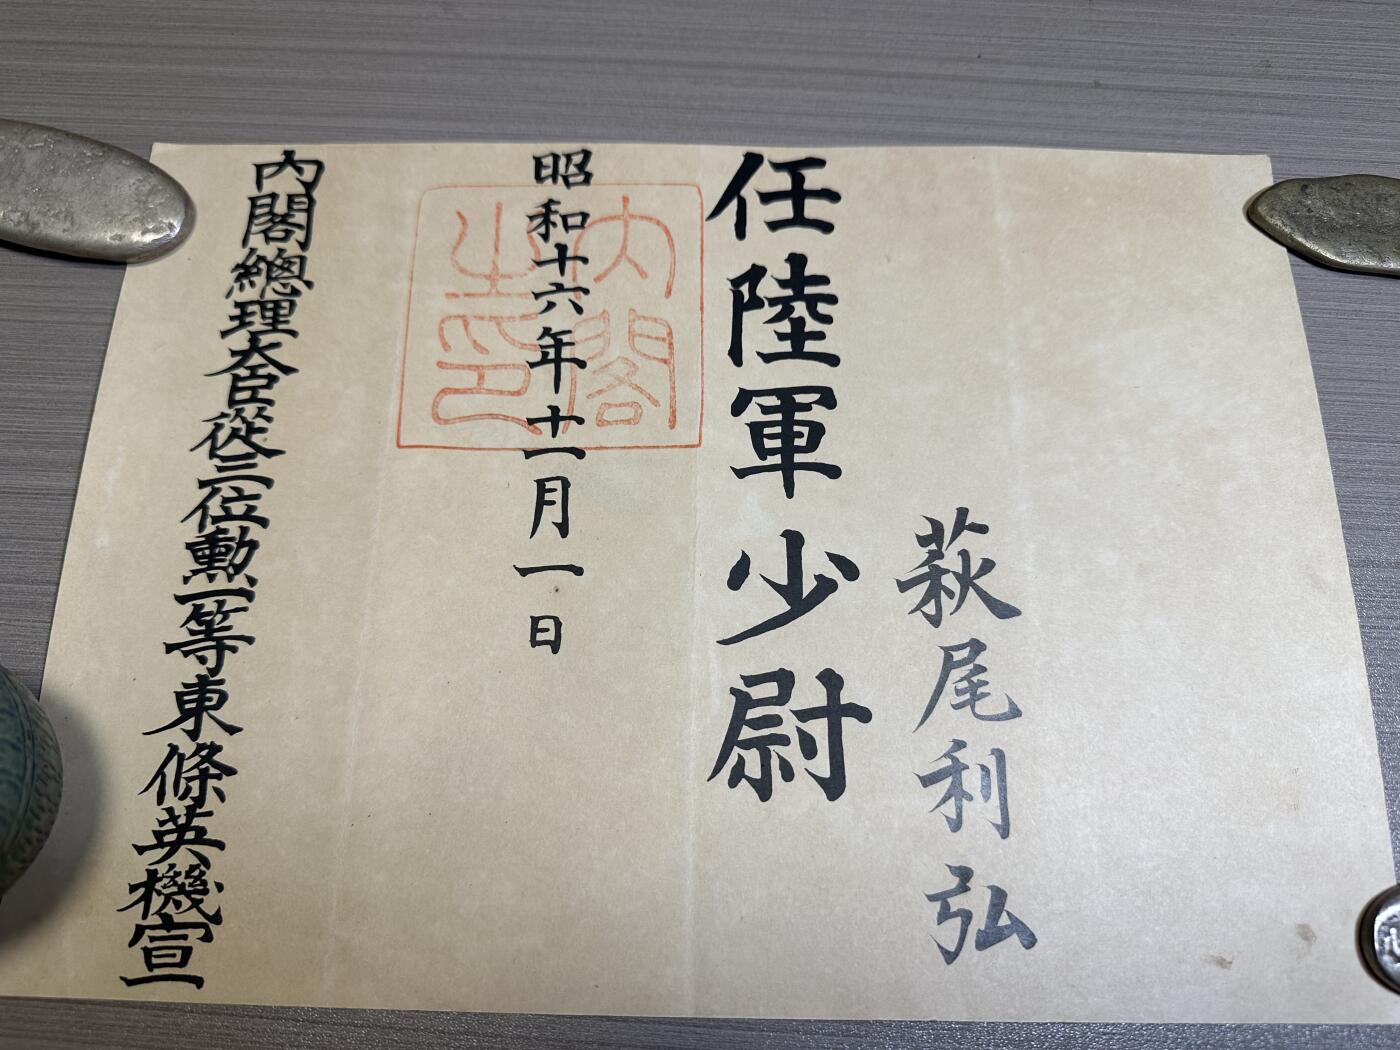 萩尾利弘
任陸軍少尉
昭和十六年十一月一日
內閣之印
內閣總理大臣從三位勳一等東條英機宣